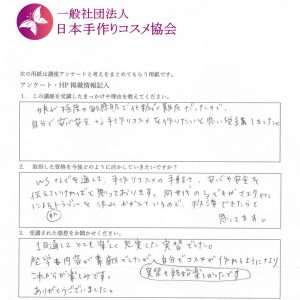 一般社団法人
日本手作りコスメ協会
次の用紙は講座アンケートと考えをまとめてもらう用紙です。
アンケート・HP掲載情報記入
1. この講座を受講したきっかけや理由を教えてください。
娘が極度の敏感肌で化粧品難民だったので、
自分で安心安全な手作りコスメを作りたいと思い受講しました。
2. 取得した資格を今後どのように活かしていきたいですか?
WSなどを通して、手作りコスメの手軽さ、安心や安全を
伝えていければと思っております。同世代の方でもがマスクetc
によるトラブルを沢山かかっているので、救済できたらと
思ってます。
3. 受講された感想をお聞かせください。
1日通しとても楽しく充実した実習でした。
座学も内容が素敵でしたが、自分でコスメが作れようになり
これからが楽しみです。
実習も終始楽しかったです
ありがとうございました。